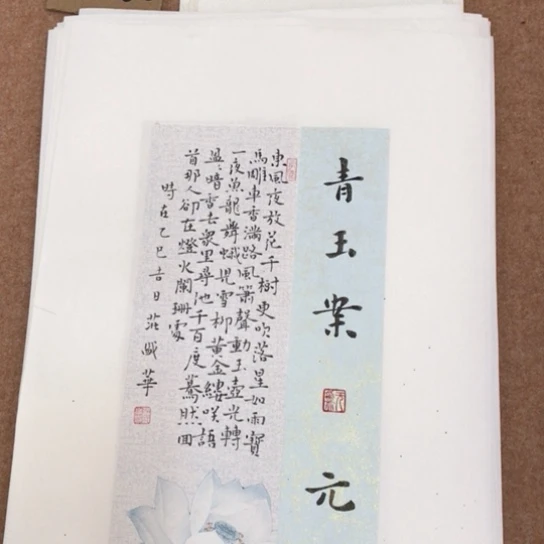 青玉案
元
東風夜放花千樹更吹落星如雨寶
馬雕車香滿路風簫聲動玉壺光轉
一夜魚龍舞蛾兒雪柳黃金縷笑語
盈〻暗香去衆里尋他千百度驀然回
首那人卻在燈火闌珊處
時在乙巳吉日莊華